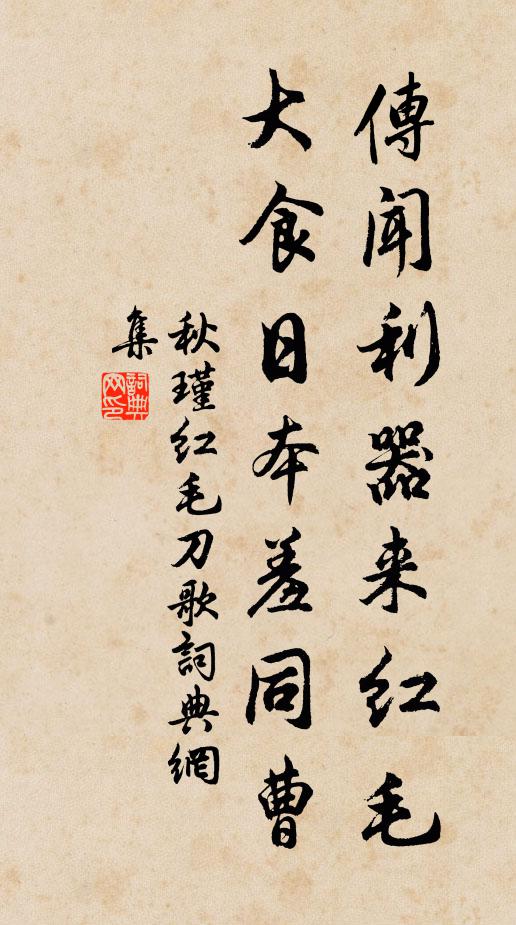 傳聞利器来红毛
大食日本羞同曹
秋瑾红毛刀歌詞典網
集
詞典
网印